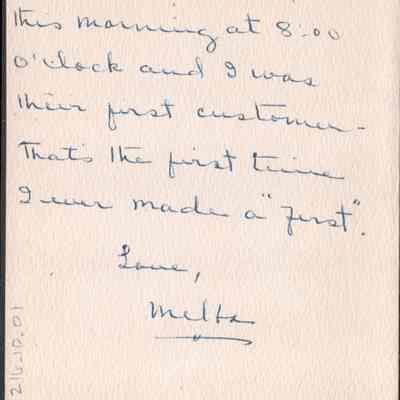 this morning at 8:00
o'clock and I was
their first customer-
That's the first time
I ever made a "first".
Love,
Melba
216.10.01